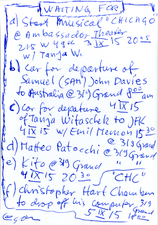 WAITING FOR
a) start musical "CHICAGO"
@ Ambassador Theater
215 W 49th 3 IX 15 20:00
w/ Tanja W.
b) car for departure of
Samuel (SAM) John Davies
to Australia @ 319 Grand 8:00 am
c) car for depature 4 IX 15
of Tanja Witaschek to JFK
4 IX 15 w/ Emil Memon 15 30
d) Matteo Patocchi @ 319 Grand
e) Kito @ 319 Grand
4 IX 15 20 30 "CHC"
f) christopher Hart Chambers
to drop off his computer 319 Grand
5 IX 15 18 00